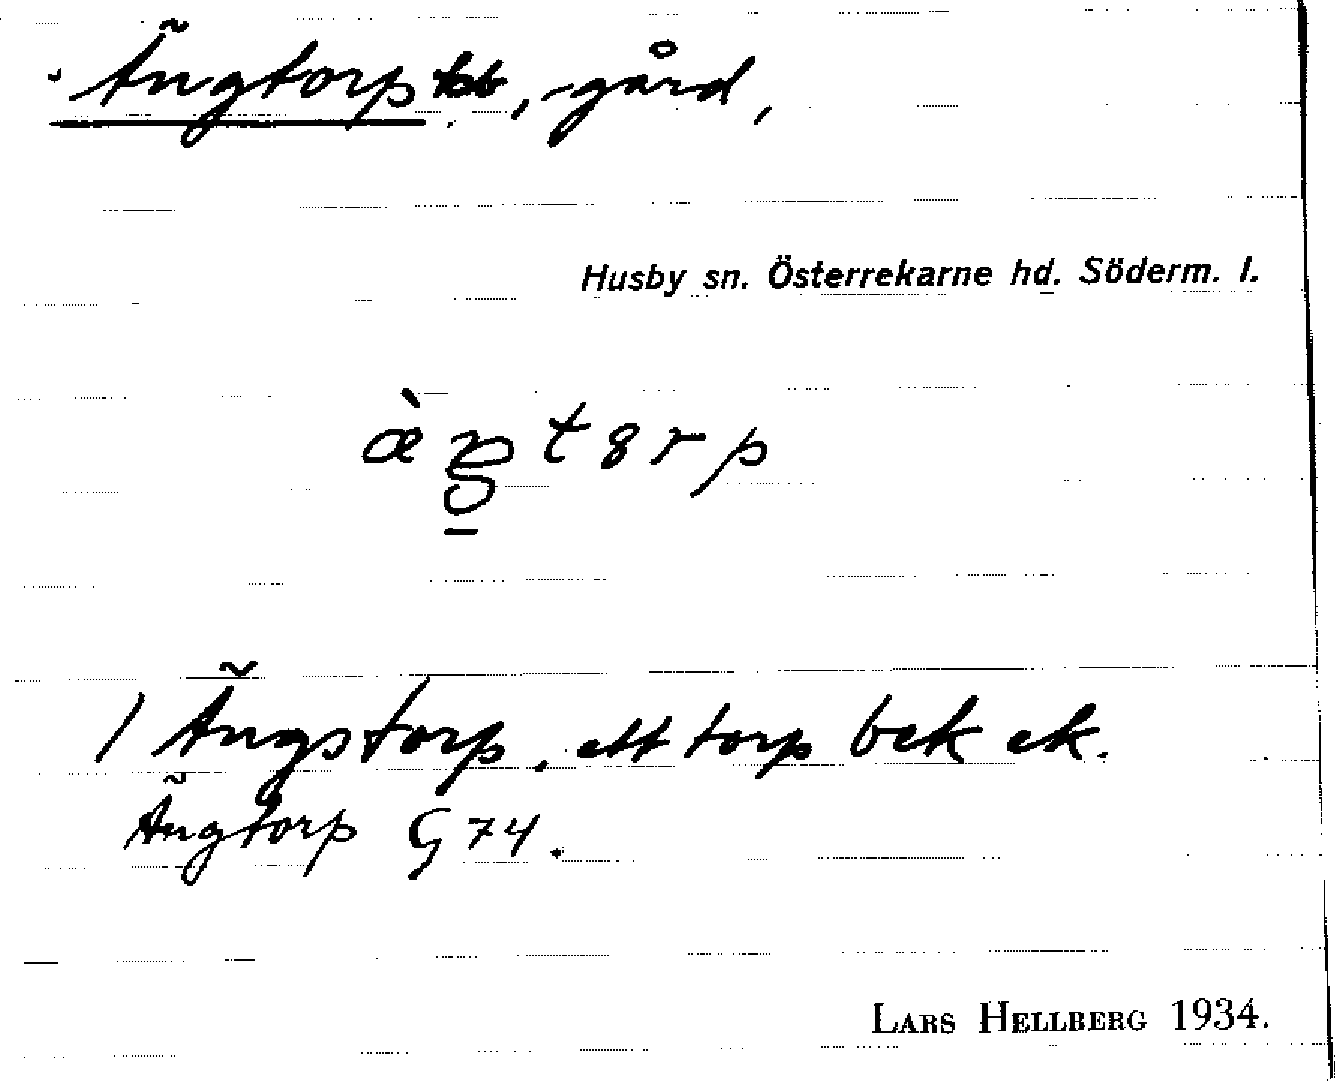 Ängtorp, -gård,
Husby sn. Österrekarne hd. Söderm. l.
1 Ängstorp, ett torp bek ek.
Ängtorp G 74.
LARS HELLBERG 1934.